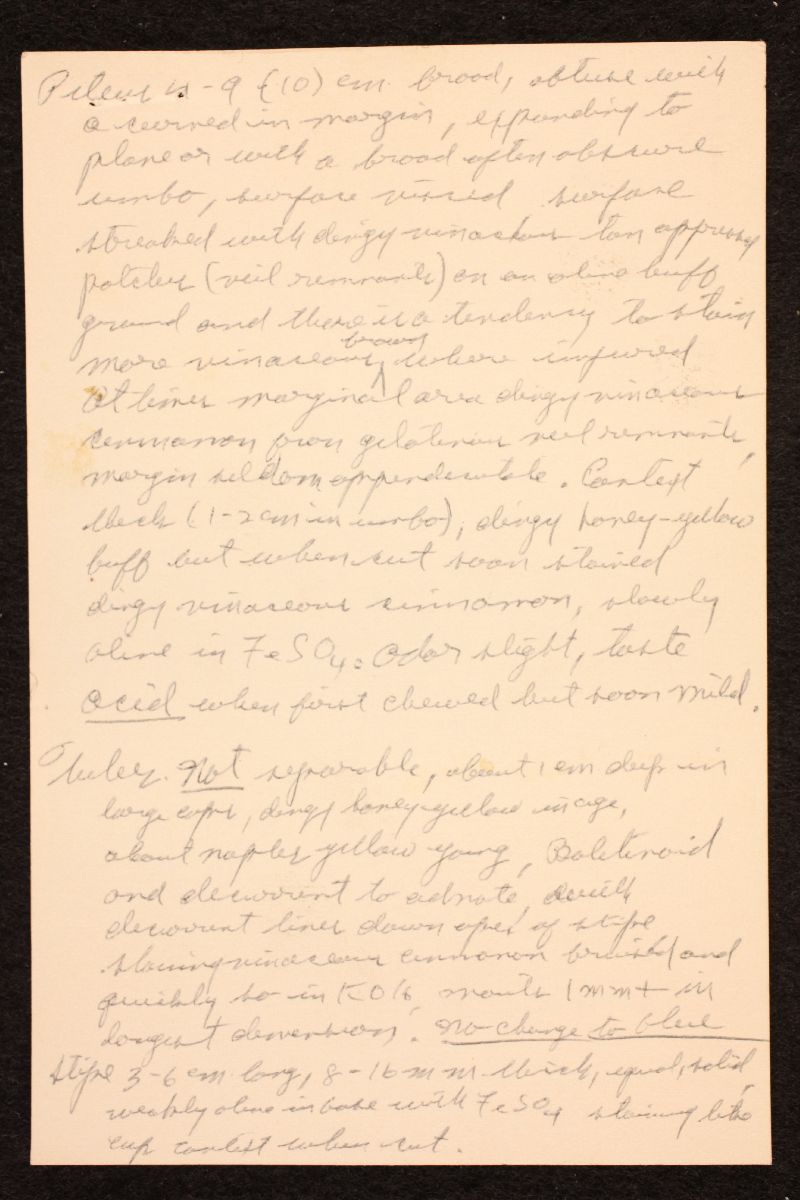 Pileus 4-9 (10) cm broad, obtuse with
a curved in margin, expanding to
plane or with a broad often obscure
umbo, surface viscid surface
streaked with dingy vinaceous tan appressed
patches (veil remnants) on an olive buff
ground and there is a tendency to stain
more vinaceous brown where injured
At times marginal area dingy vinaceous
cinnamon from gelatinous veil remnants,
margin seldom appendiculate. Context
thick (1-2 cm in umbo), dingy honey-yellow
buff but when cut soon stained
dingy vinaceous cinnamon, slowly
olive in FeSO4. Odor slight, taste
acid when first chewed but soon mild.
Tubes. Not separable, about 1 cm deep in
large caps, dingy honey-yellow in age,
about naples yellow young, Boletinoid
and decurrent to adnate, with
decurrent lines down apex of stipe
staining vinaceous cinnamon bruised and
quickly so in KOH, mouths 1 mm+ in
longest dimension. No change to blue
Stipe 3-6 cm long, 8-16 mm thick, equal, solid,
weakly olive in base with FeSO4 staining like
cap context when cut.